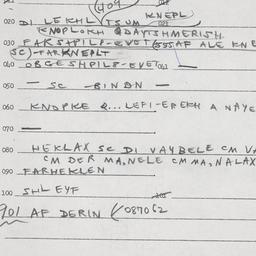 409
KNEPL
020 DI LEKHL TSUM 021
KNOPLOKH & DAYTSHMERISH
030 FARSHPILP-EVET (SSSAF ALE KNE
SC)-FARKNEPLT
040 OBGESHPILP-EVET 041
050 — SC — BINDN —
060 KNOPKE
070
080 HEKLAX SC DI VAYBELE CM VA
CM DER MA,NELE CM MA,NALAX
090 FARHEKLEN
100 SHLEYF 105
901 AF DERIN (087062